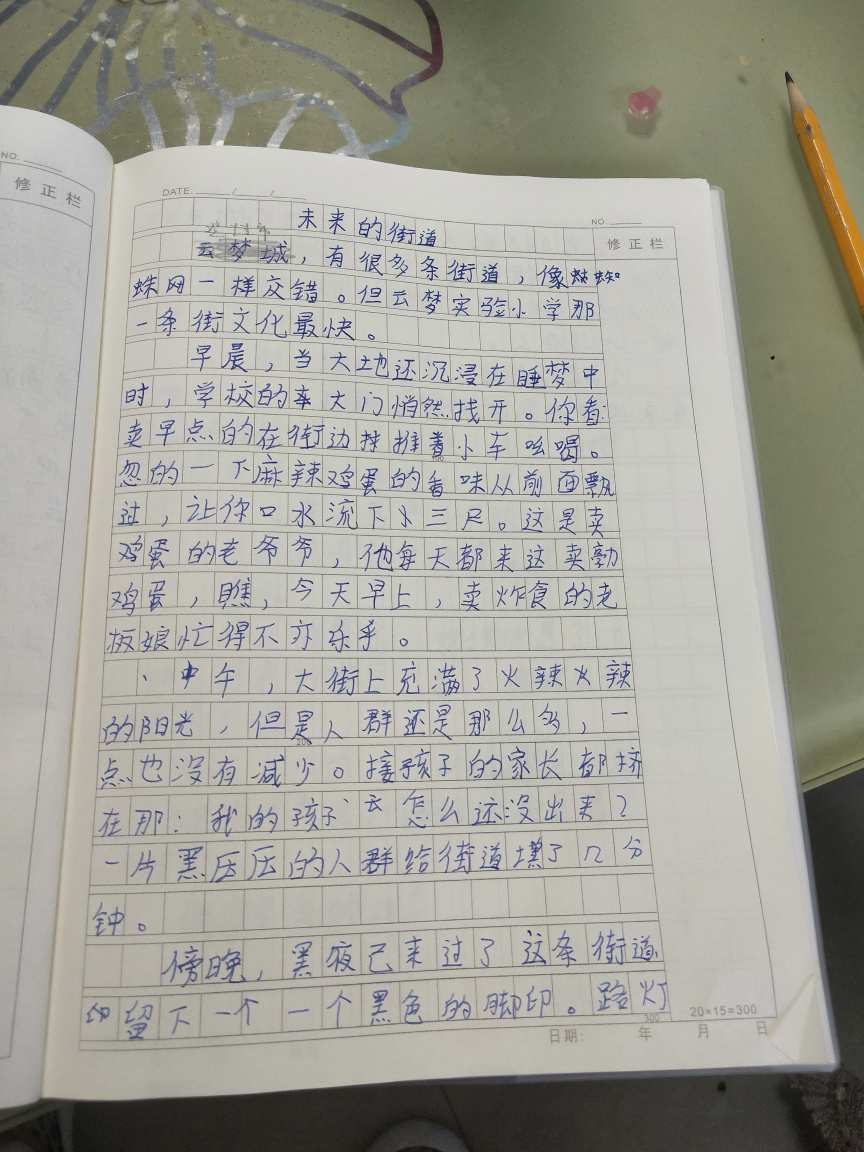 NO.
修正栏
DATE: / /
NO.
修正栏
未来的街道
云梦城，有很多条街道，像蜘蛛
蛛网一样交错。但云梦实验小学那
一条街文化最快。
早晨，当大地还沉浸在睡梦中
时，学校的大门悄然找开。你看:
卖早点的在街边推着小车吆喝。
忽的一下麻辣鸡蛋的香味从前面飘
过，让你口水流下三尺。这是卖
鸡蛋的老爷爷，他每天都来这卖
鸡蛋，瞧，今天早上，卖炸食的老
板娘忙得不亦乐乎。
、中午，大街上充满了火辣火辣
的阳光，但是人群还是那么多，一
点也没有减少。接孩子的家长都挤
在那：我的孩子怎么还没出来？
一片黑压压的人群给街道填了几分
钟。
傍晚，黑夜己来过了这条街道，
留下一个一个黑色的脚印。路灯
200
300
20×15=300
日期: 年 月 日